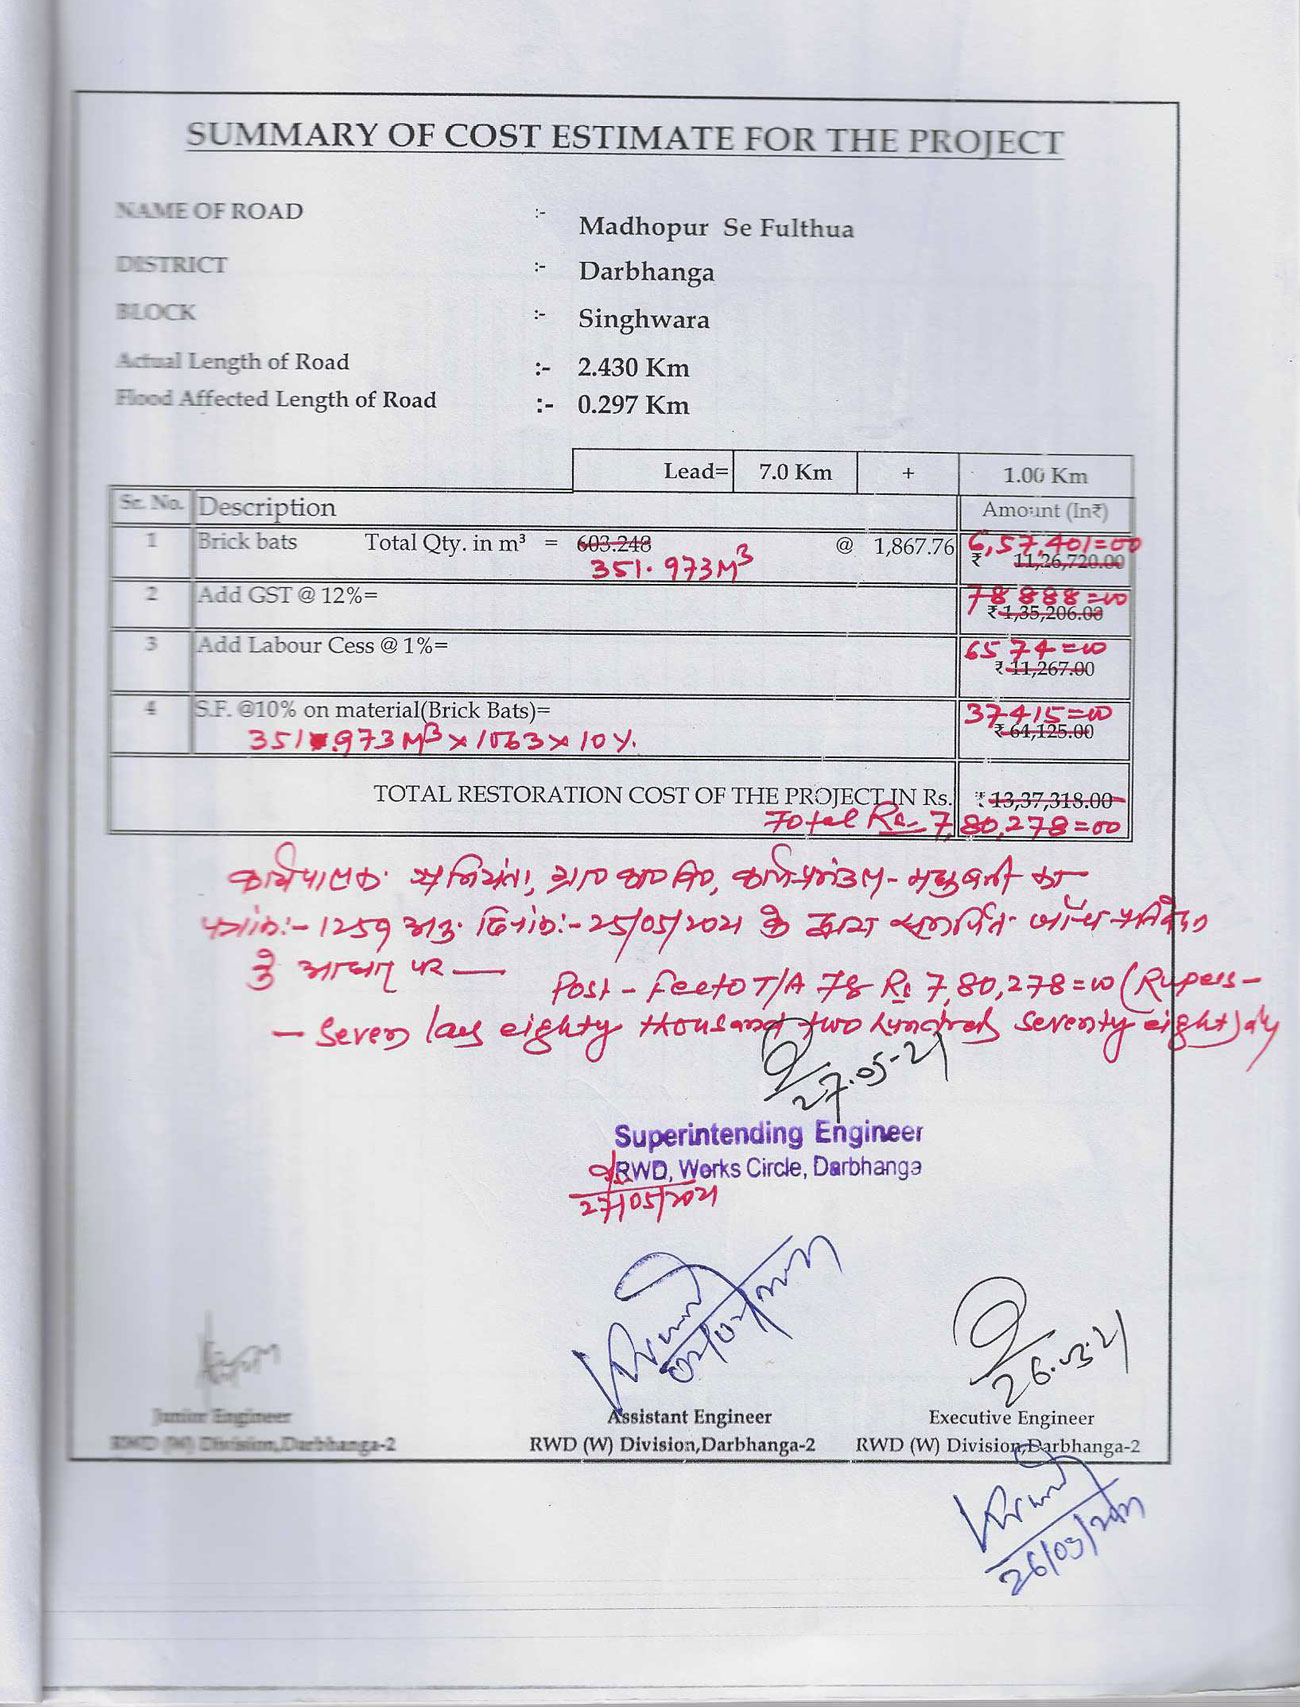 SUMMARY OF COST ESTIMATE FOR THE PROJECT
NAME OF ROAD :- Madhopur Se Fulthua
DISTRICT :- Darbhanga
BLOCK :- Singhwara
Actual Length of Road :- 2.430 Km
Flood Affected Length of Road :- 0.297 Km
Lead= 7.0 Km + 1.00 Km
Sr. No. Description Amount (In₹)
1 Brick bats Total Qty. in m³ = 603.248 @ 1,867.76 6,57,401=00
351.973M³ ₹ 11,26,720.00
2 Add GST @ 12%= 78888=00
₹ 1,35,206.00
3 Add Labour Cess @ 1%= 6574=00
₹ 11,267.00
4 S.F. @10% on material(Brick Bats)= 37415=00
351.973M³ x 1063 x 10%. ₹ 64,125.00
TOTAL RESTORATION COST OF THE PROJECT IN Rs. ₹ 13,37,318.00
Total Rs. 7,80,278=00
कार्यपालक अभियंता, कार्य प्रमंडल- मधुबनी का
पत्रांक:- 1259 अनु० दिनांक:- 25/05/2021 के द्वारा समर्पित जाँच प्रतिवेदन
के आधार पर —
Post - Feeto T/A Rs 7,80,278=00 (Rupees-
- Seven lacs eighty thousand two hundred seventy eight) only
27.05-21
Superintending Engineer
RWD, Works Circle, Darbhanga
27/05/2021
02/02/2021
26.03.21
Junior Engineer Assistant Engineer Executive Engineer
RWD (W) Division,Darbhanga-2 RWD (W) Division,Darbhanga-2 RWD (W) Division,Darbhanga-2
26/03/2021